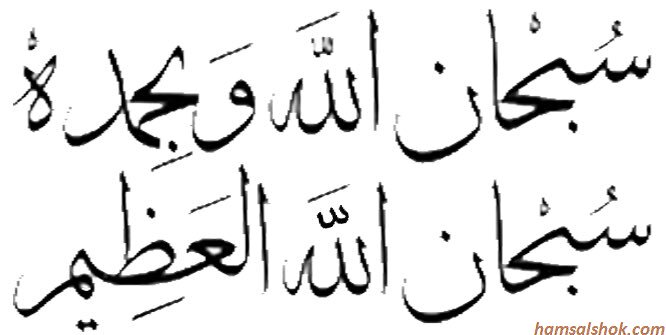 سُبْحان اللّه وَبِحَمْدهْ
سُبْحان اللّه العَظِيم
hamsalshok.com